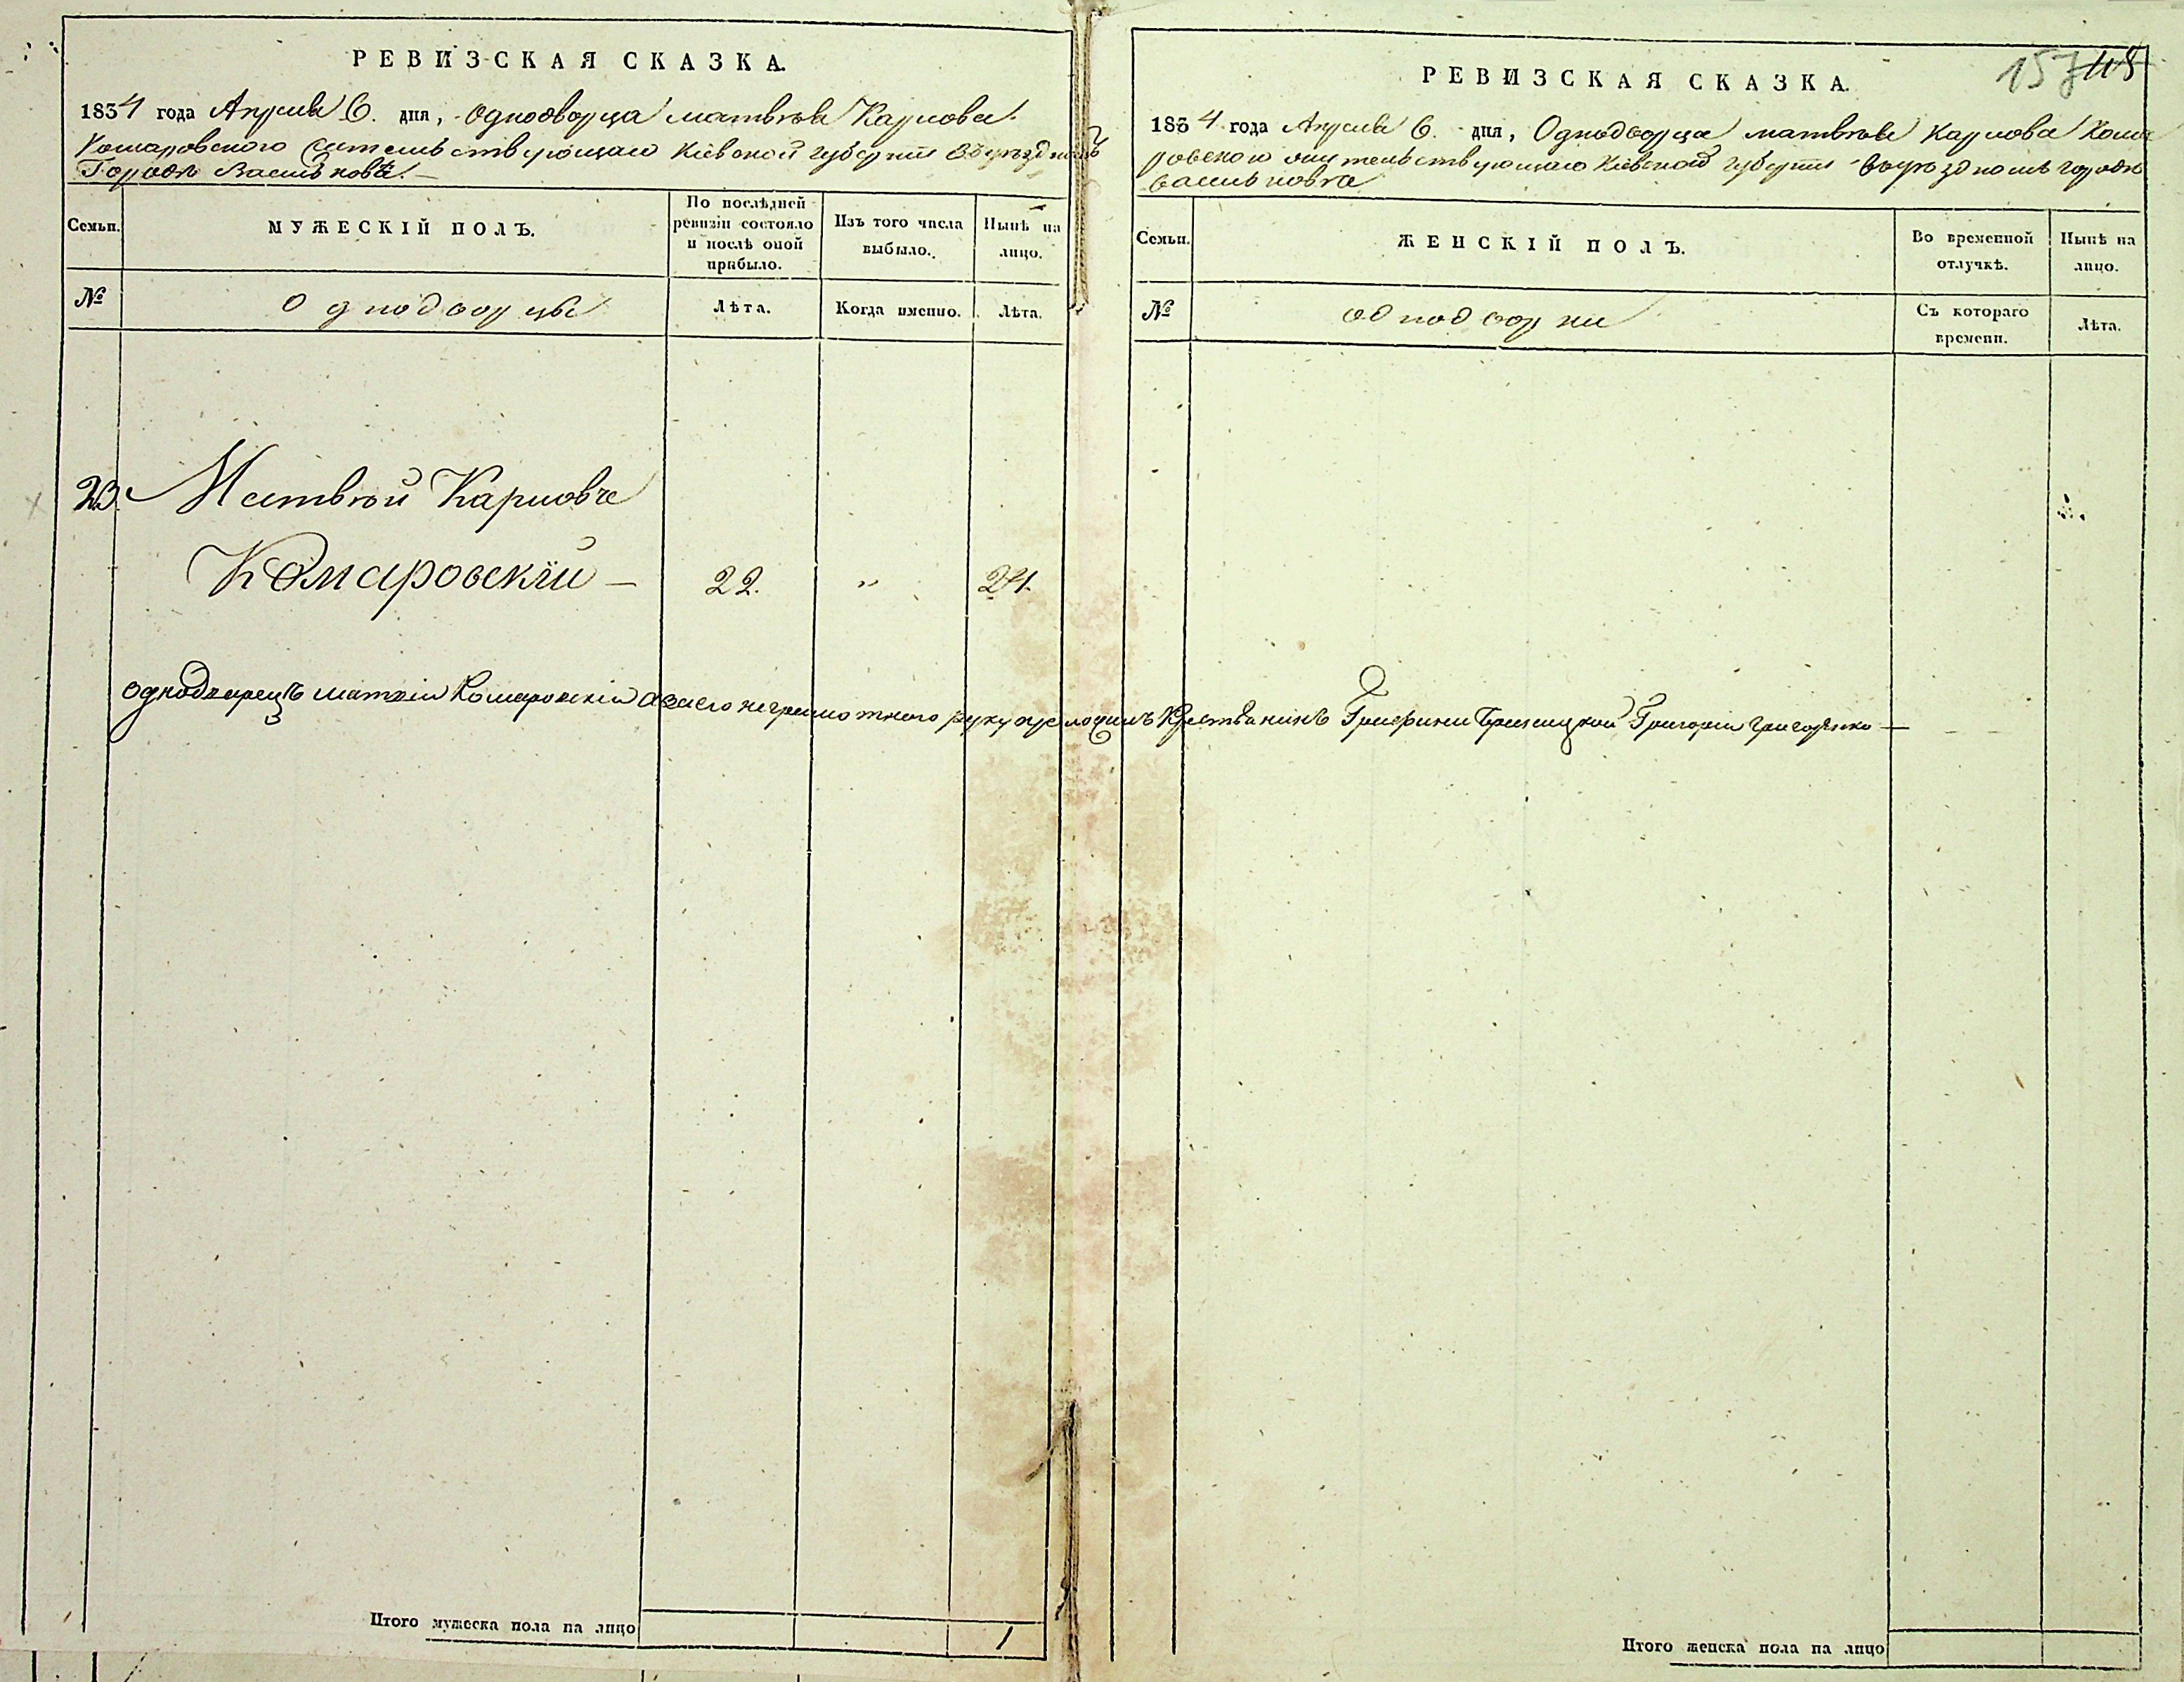 РЕВИЗСКАЯ СКАЗКА.
1834 года Апреля 6. дня, Однодворца Матвѣя Карлова
Комаровского жительствующаго Кіевской губерніи Въ уѣздномъ
Городѣ Васильковѣ.
Семьи.
МУЖЕСКІЙ ПОЛЪ.
По послѣдней ревизіи состояло и послѣ оной прибыло.
Изъ того числа выбыло.
Нынѣ на лицо.
№
Однодворцы
Лѣта.
Когда именно.
Лѣта.
23. Матвѣй Карловъ
Комаровскій — 22. " 24.
Однодворецъ Матвій Комаровскій а за его неграмотного руку приложилъ Крестьянинъ Графини Браницкой Григорій Григоренко —
Итого мужеска пола на лицо 1
157 48
РЕВИЗСКАЯ СКАЗКА.
1834 года Апреля 6. дня, Однодворца Матвѣя Карлова Кома
ровского жительствующаго Кіевской губерніи въ уѣздномъ городѣ
Васильковѣ
Семьи.
ЖЕНСКІЙ ПОЛЪ.
Во временной отлучкѣ.
Нынѣ на лицо.
№
однодворки
Съ котораго времени.
Лѣта.
Итого женска пола на лицо